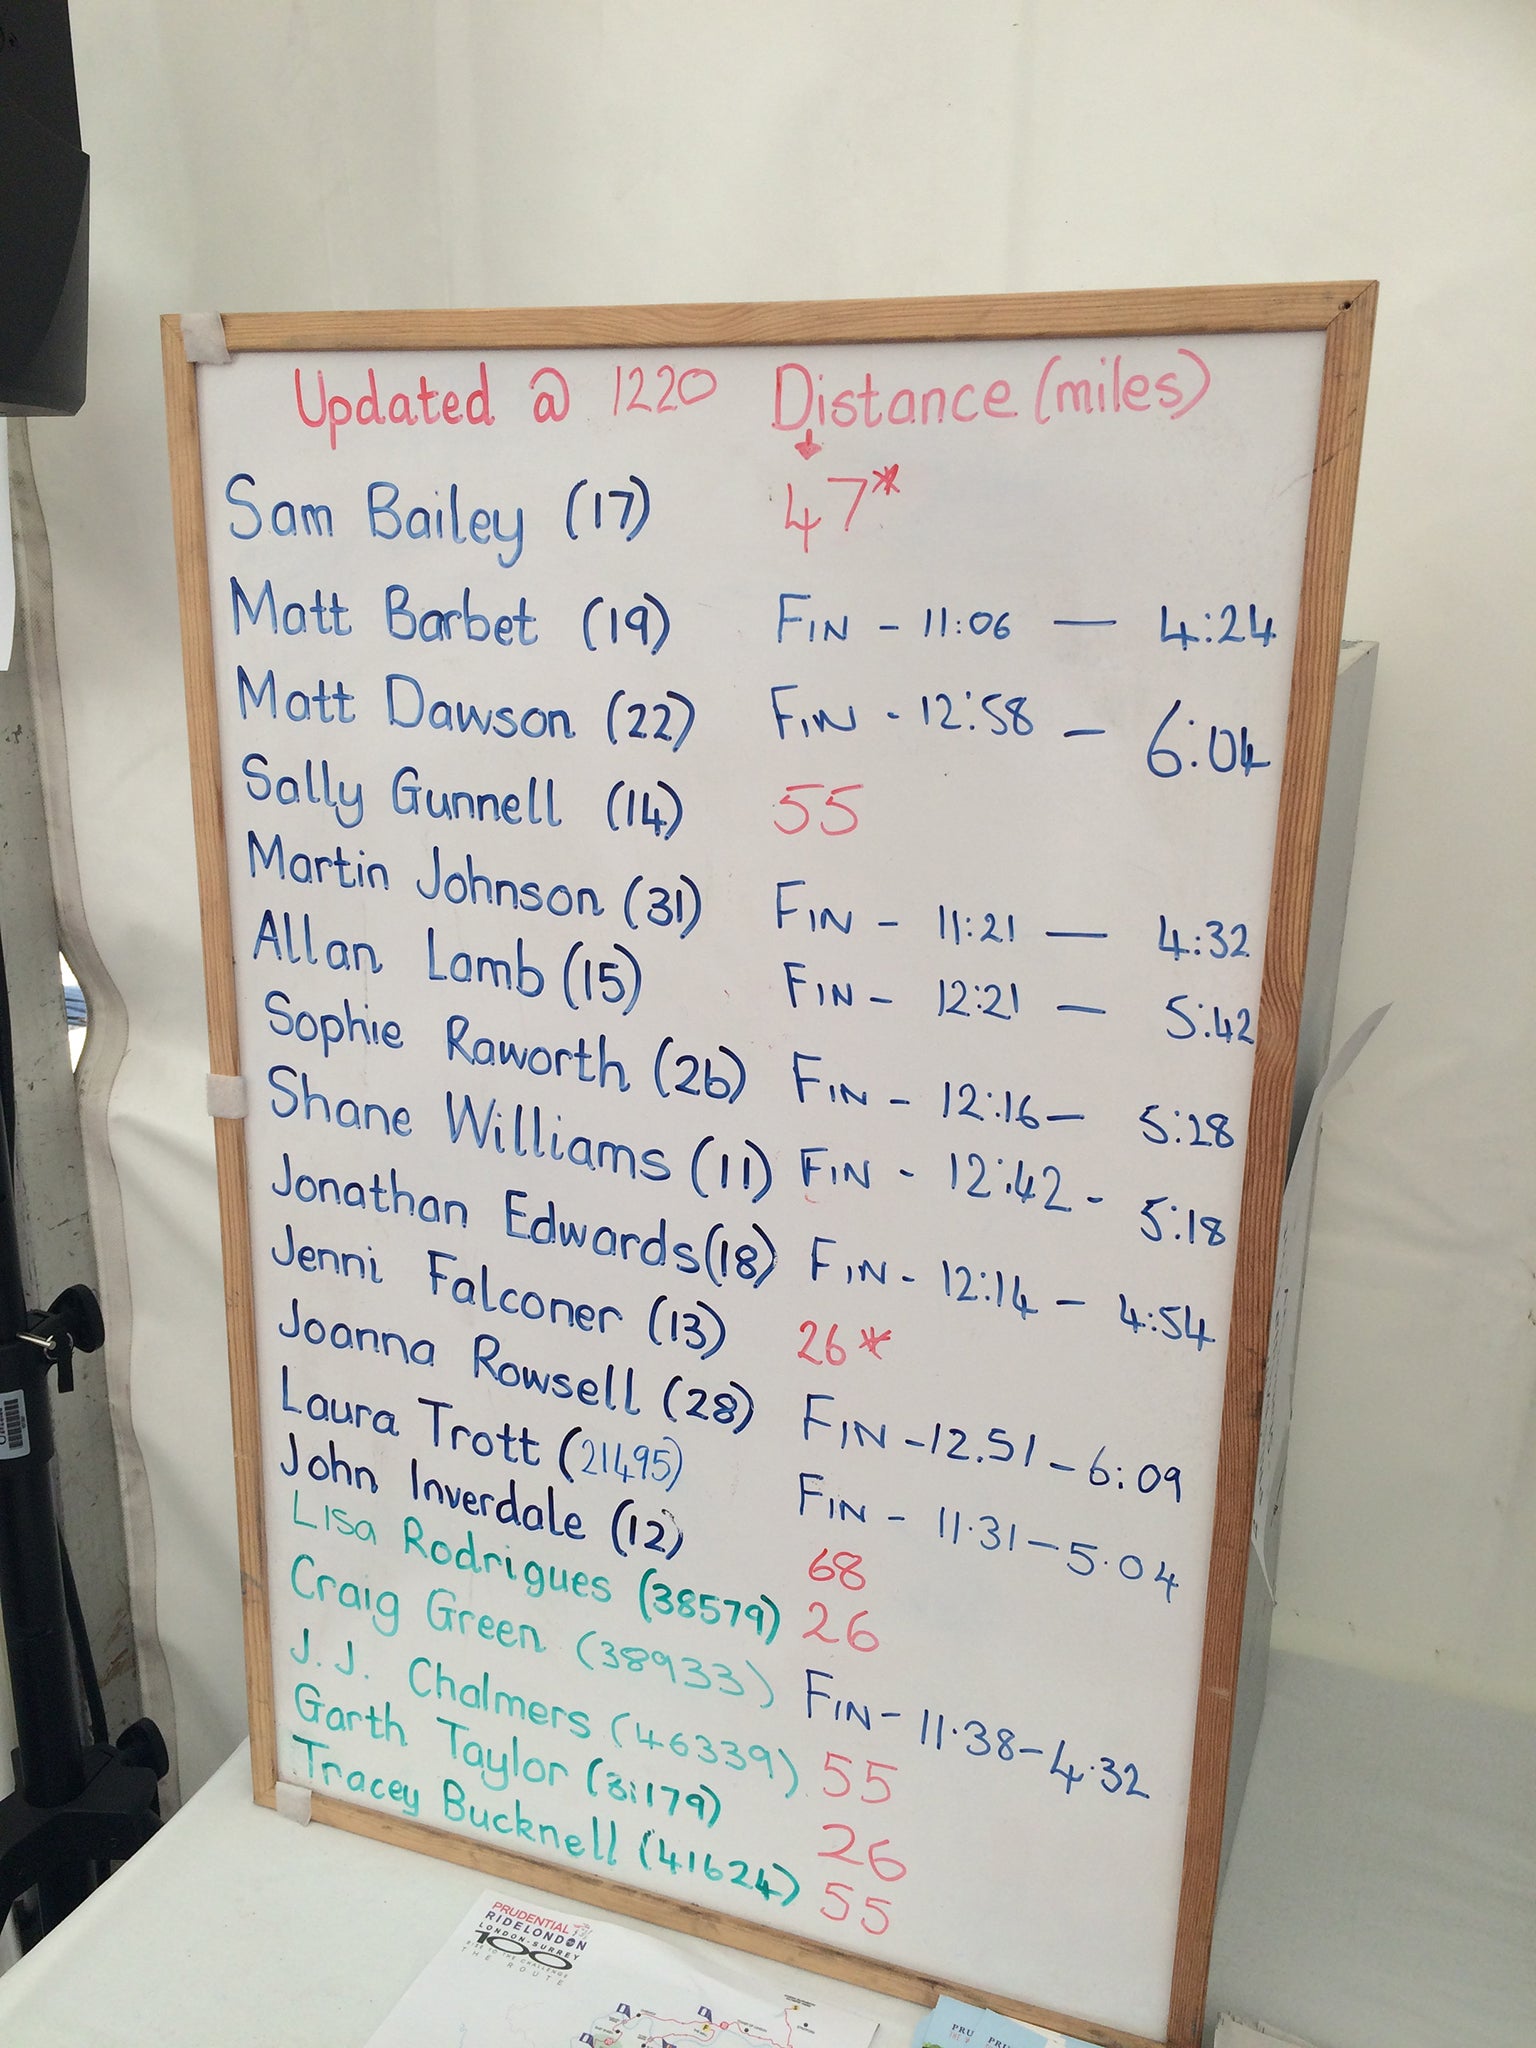 Updated @ 1220 Distance (miles)
Sam Bailey (17) 47*
Matt Barbet (19) FIN - 11:06 — 4:24
Matt Dawson (22) FIN - 12:58 - 6:04
Sally Gunnell (14) 55
Martin Johnson (31) FIN - 11:21 — 4:32
Allan Lamb (15) FIN - 12:21 — 5:42
Sophie Raworth (26) FIN - 12:16 — 5:28
Shane Williams (11) FIN - 12:42 - 5:18
Jonathan Edwards (18) FIN - 12:14 - 4:54
Jenni Falconer (13) 26*
Joanna Rowsell (28) FIN - 12.51 - 6:09
Laura Trott (21495) FIN - 11.31 - 5.04
John Inverdale (12) 68
Lisa Rodrigues (38579) 26
Craig Green (38933) FIN - 11.38 - 4.32
J.J. Chalmers (46339) 55
Garth Taylor (31179) 26
Tracey Bucknell (41624) 55
PRUDENTIAL
RIDELONDON
LONDON-SURREY
100
THE ROUTE
PRU
PRU